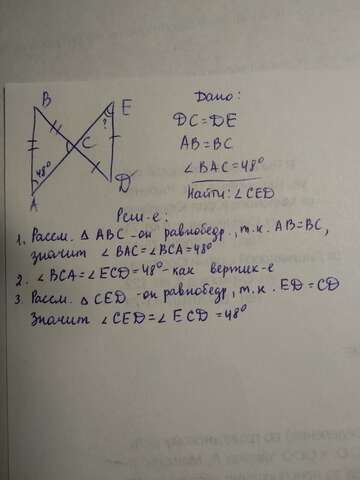 B
E
?
C
48°
A
D
Дано:
DC=DE
AB=BC
∠BAC=48°
Найти: ∠CED
Реш-е:
1. Рассм. △ ABC -он равнобедр., т.к. AB=BC,
значит ∠BAC=∠BCA=48°
2. ∠BCA=∠ECD=48°-как вертик-е
3. Рассм. △ CED -он равнобедр, т.к. ED=CD
Значит ∠CED=∠ECD=48°